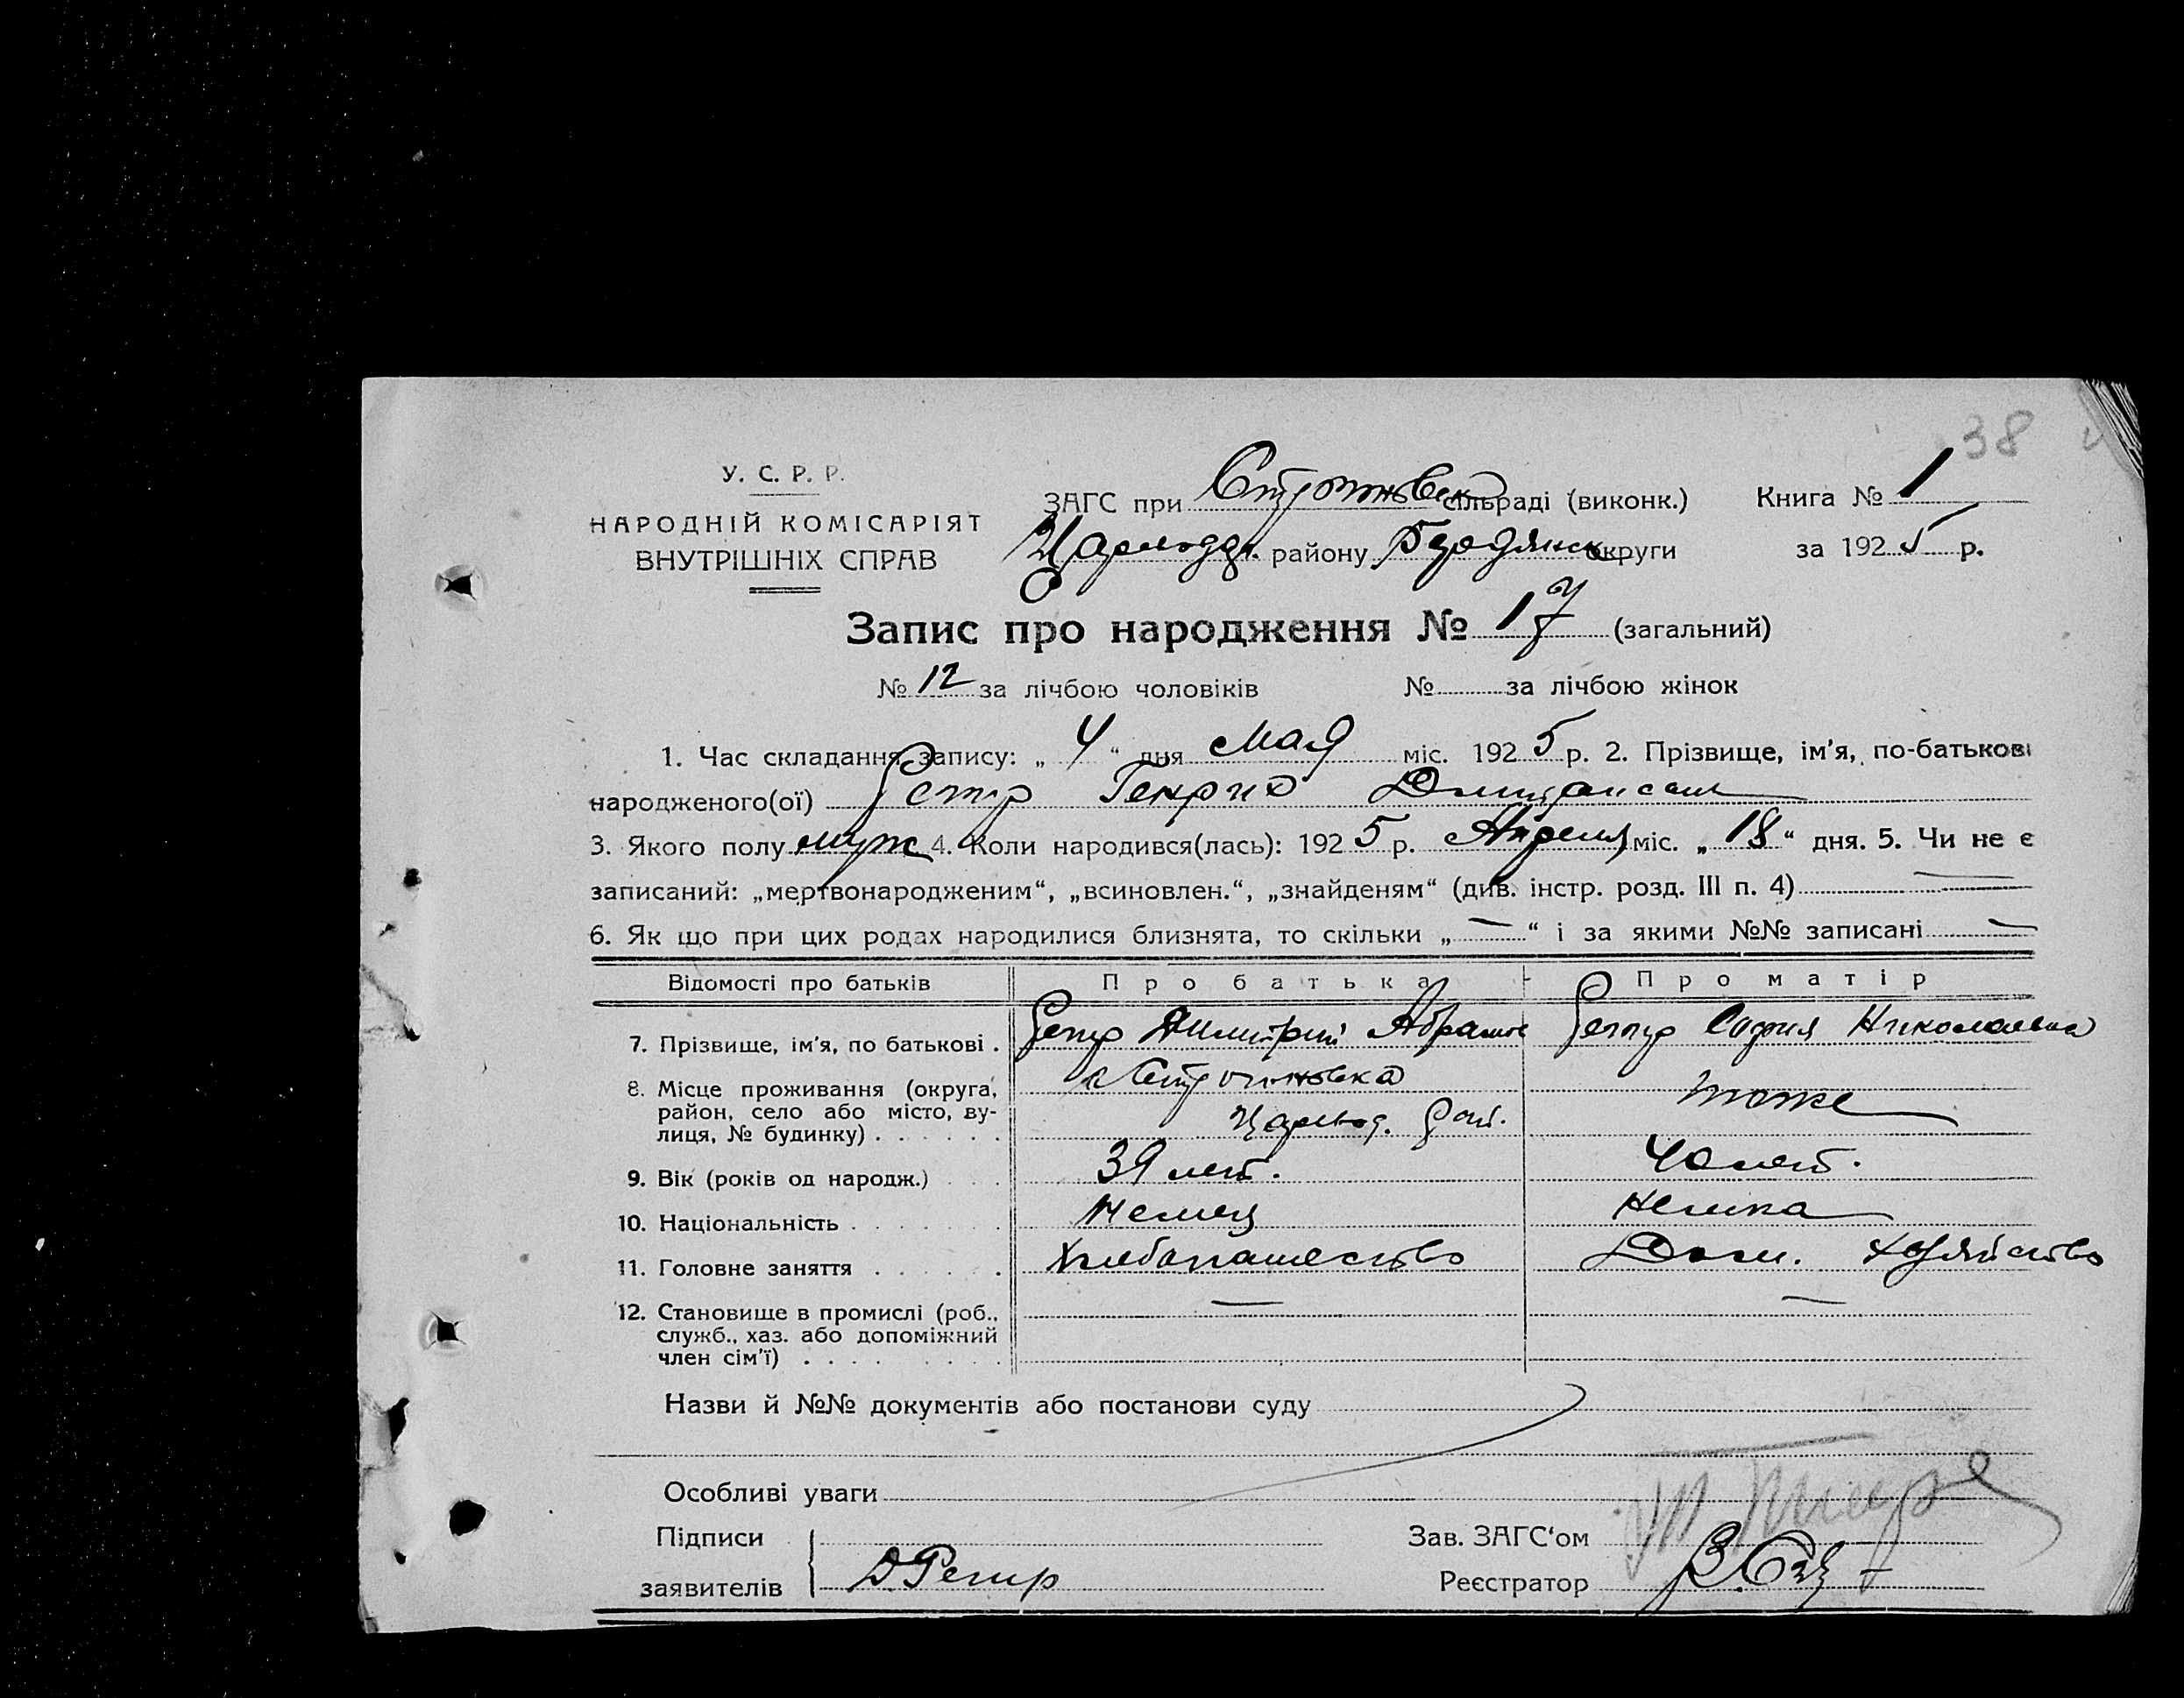 38
У. С. Р. Р.
НАРОДНІЙ КОМІСАРІЯТ
ВНУТРІШНІХ СПРАВ
ЗАГС при сільраді (виконк.) Книга № 1
району Бердянск округи за 1925 р.
Запис про народження № 17 (загальний)
№ 12 за лічбою чоловіків № за лічбою жінок
1. Час складання запису: „ 4 “ дня Мая міс. 1925 р. 2. Прізвище, ім'я, по-батькові
народженого(ої) Генрих
3. Якого полу муж 4. Коли народився(лась): 1925 р. Апреля міс. „ 18 “ дня. 5. Чи не є
записаний: „мертвонародженим“, „всиновлен.“, „знайденям“ (див. інстр. розд. III п. 4) —
6. Як що при цих родах народилися близнята, то скільки „ — “ і за якими №№ записані —
Відомості про батьків Про батька Про матір
7. Прізвище, ім'я, по батькові . Димитрий Абрамов София Николаевна
8. Місце проживання (округа, район, село або місто, вулиця, № будинку) . . . . . . тоже
9. Вік (років од народж.) . . . 39 лет. 40 лет.
10. Національність . . . . . . . . Немец Немка
11. Головне заняття . . . . . . Хлебопашество Дом. хозяйство
12. Становище в промислі (роб., служб., хаз. або допоміжний член сім'ї) . . . . . . . . — —
Назви й №№ документів або постанови суду
Особливі уваги
Підписи Зав. ЗАГС‘ом
заявителів Реєстратор